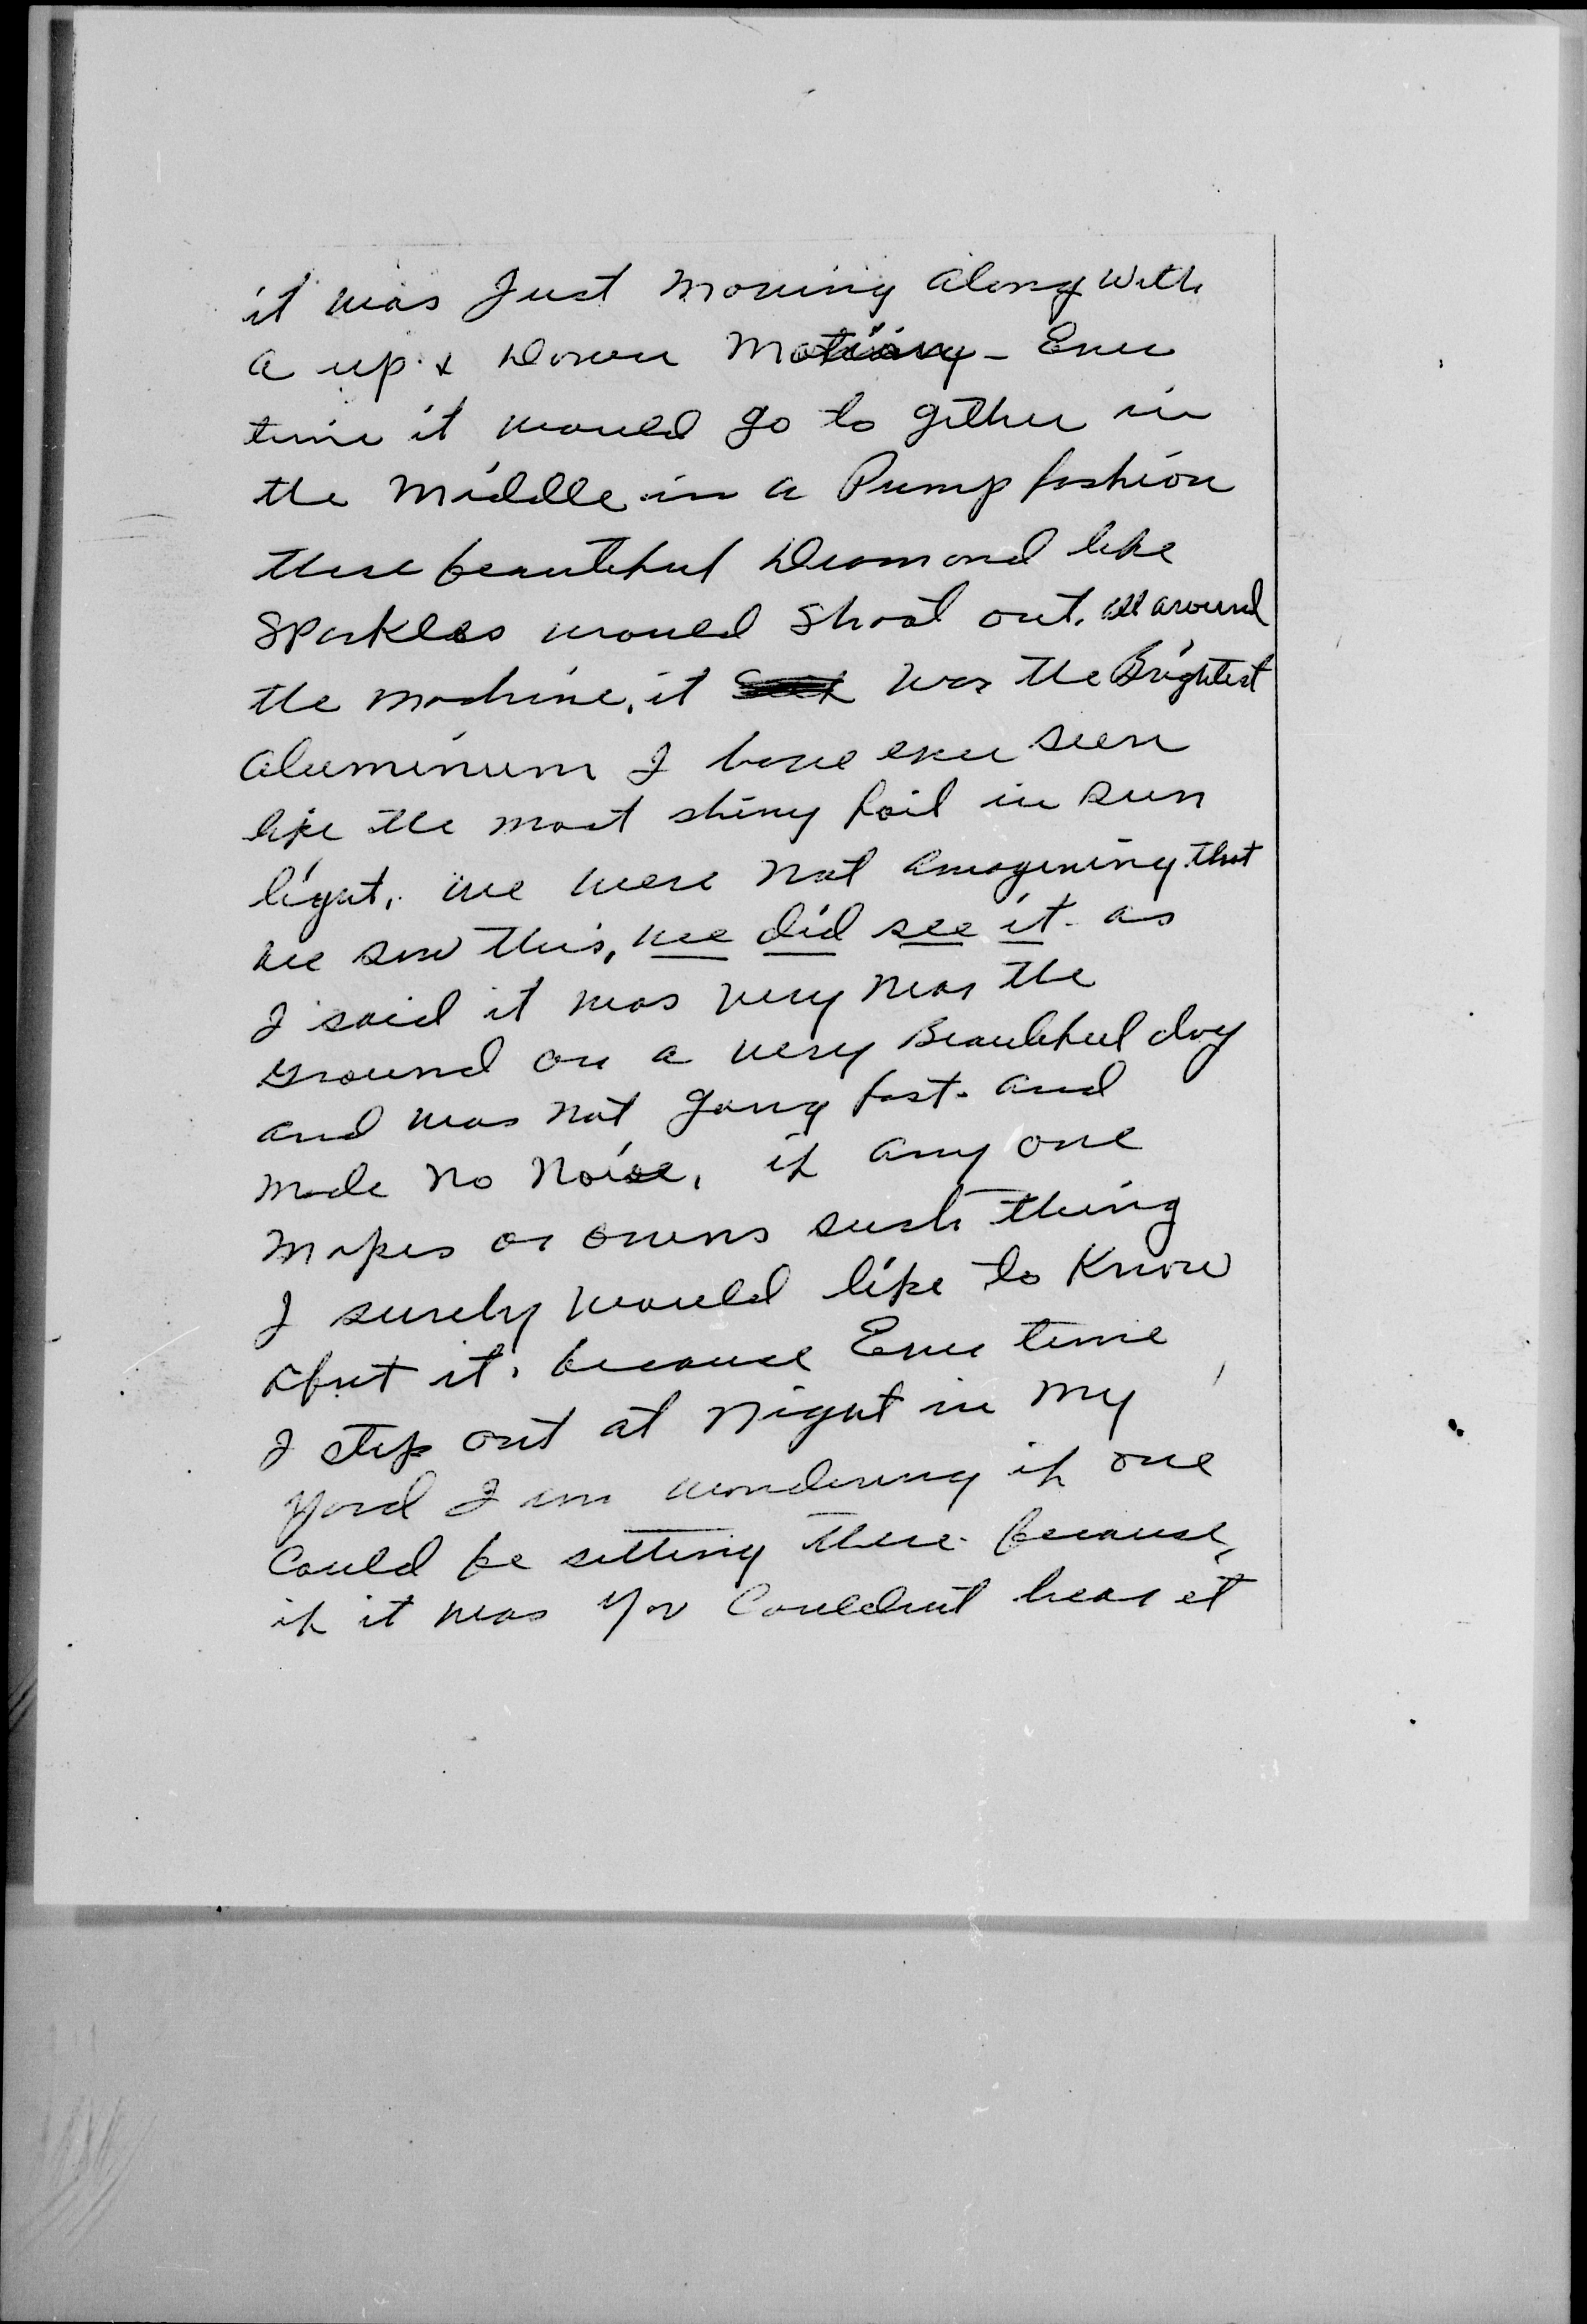 it was Just moving along with
a up & Down Motiony - Ever
time it would go to gether in
the Middle in a Pump fashion
these beautiful Diamond like
Sparkles would Shoot out. all around
the machine. it was the Brightest
aluminum I have ever seen
like the most shiny foil in sun
light. we were not amagining that
we saw this, we did see it. as
I said it was very near the
ground on a very Beautiful day
and was not going fast. and
made no noise, if any one
makes or owns such thing
I surely would like to Know
about it. because Ever time
I step out at night in my
yard I am wondering if one
Could be setting there. because,
if it was you Couldn't hear it